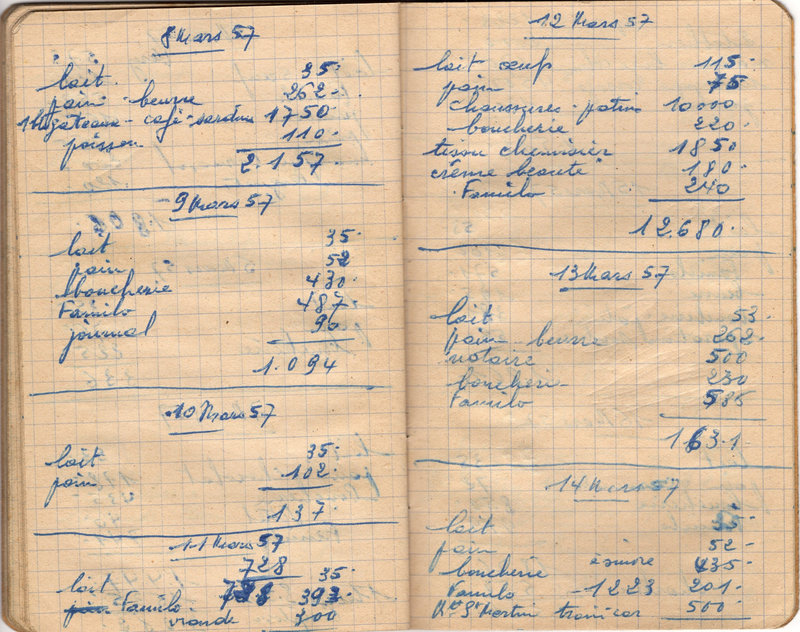 8 Mars 57
lait 35.
pain - beurre 262.
gateaux - café - sardine 1750
poisson 110.
2.157.
9 Mars 57
lait 35.
pain 52
boucherie 430.
Familo 487.
journal 90
1.094
10 Mars 57
lait 35.
pain 102.
137.
11 Mars 57
728
lait 35.
Familo. 393
viande 300
12 Mars 57
lait oeuf 115.
pain 75
chaussures - patin 10000
boucherie 220.
tissu chemisier 1850
crême beauté 180.
Familo 240
12.680.
13 Mars 57
lait 53.
pain beurre 262.
notaire 500
boucherie 230
Familo 585
1631
14 Mars 57
lait 35
pain 52-
boucherie à suivre 435.
Familo -1223 201.
St Martin 500-